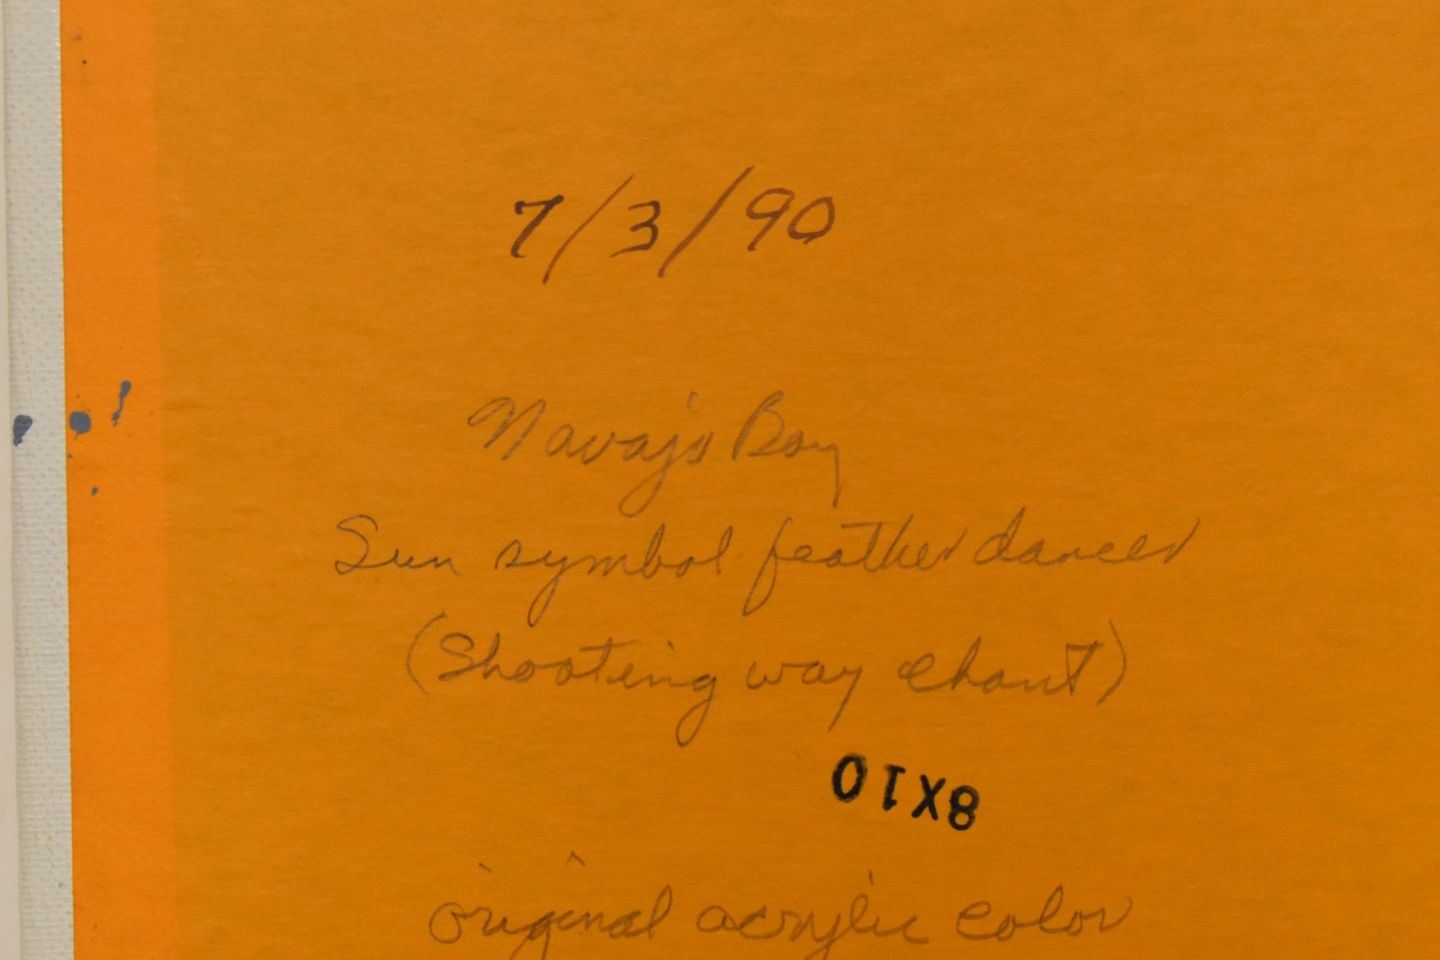 7/3/90
Navajo Boy
Sun symbol feather dancer
(Shooting way chant)
8X10
original acrylic color